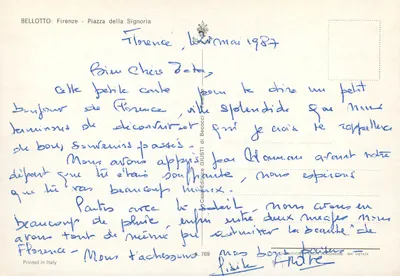 BELLOTTO: Firenze - Piazza della Signoria
Florence, le mai 1987
Bien Chère Tata,
Cette petite carte pour te dire un petit
bonjour de Florence, ville splendide que nous
terminons de découvrir et qui je crois te rappellera
de bons souvenirs passés.
Nous avons appris par Maman avant notre
départ que tu étais souffrante, nous espérons
que tu vas beaucoup mieux.
Partis avec le soleil, nous avons eu
beaucoup de pluie, enfin entre deux nuages nous
avons tout de même pu admirer la beauté de
Florence - Nous t'adressons nos bons baisers -
Printed in Italy
769